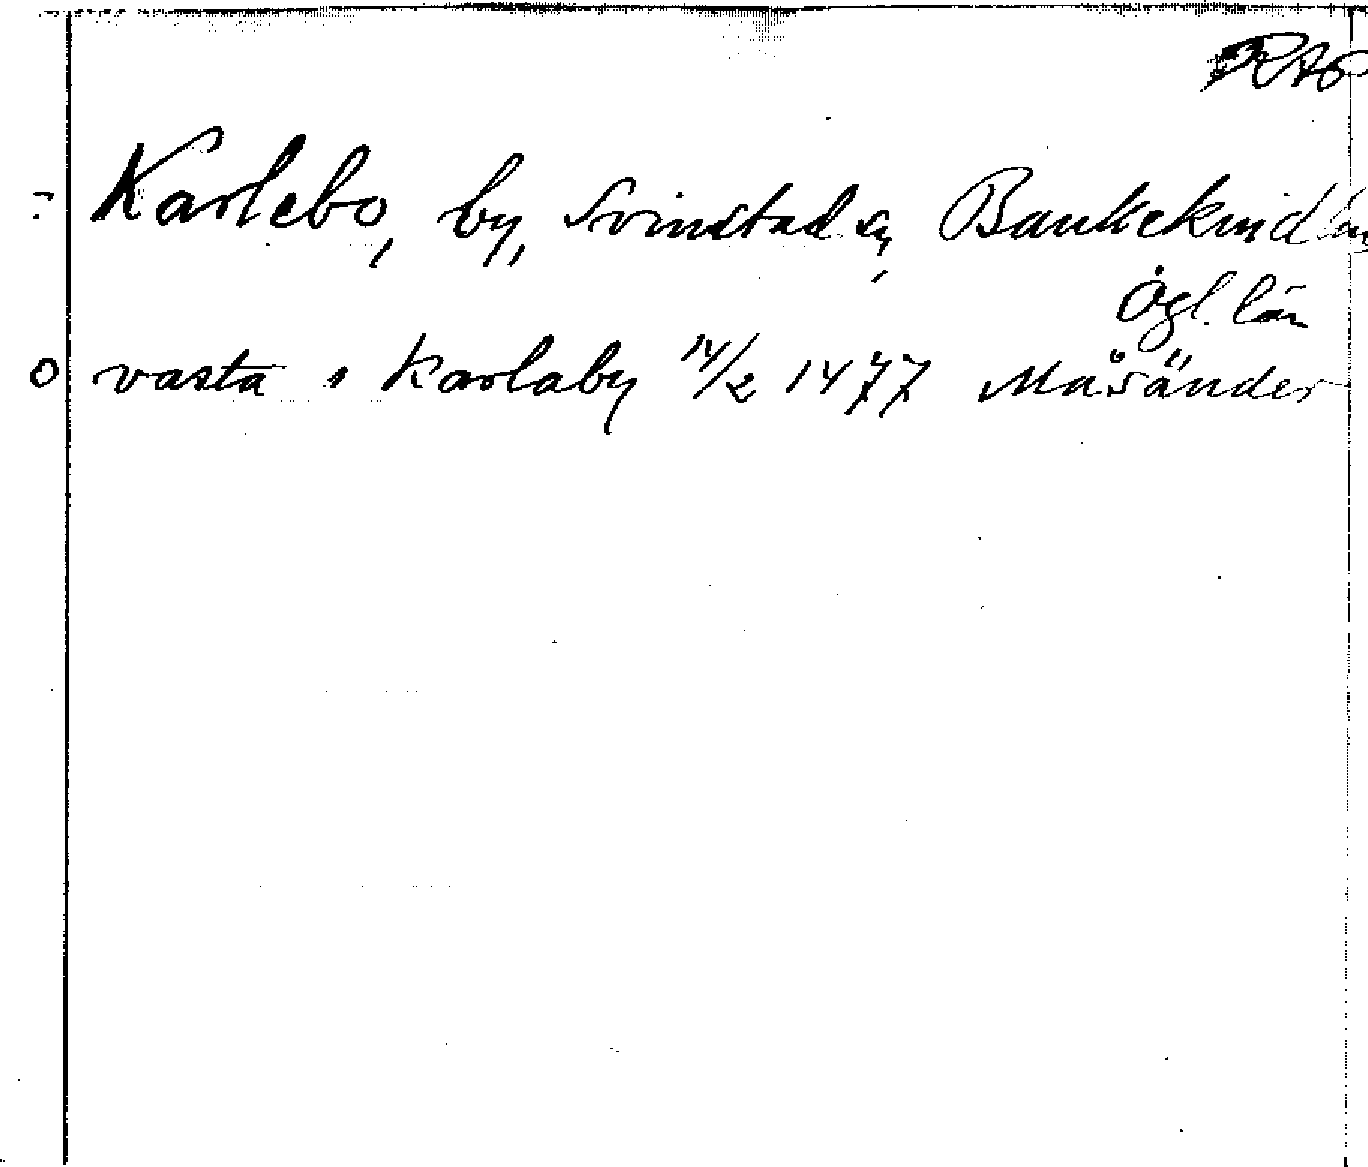 RAp
Karlebo, by, Svinstad sn, Bankekind
Ögl. län
vasta i Karlaby 14/2 1477 Måsänder